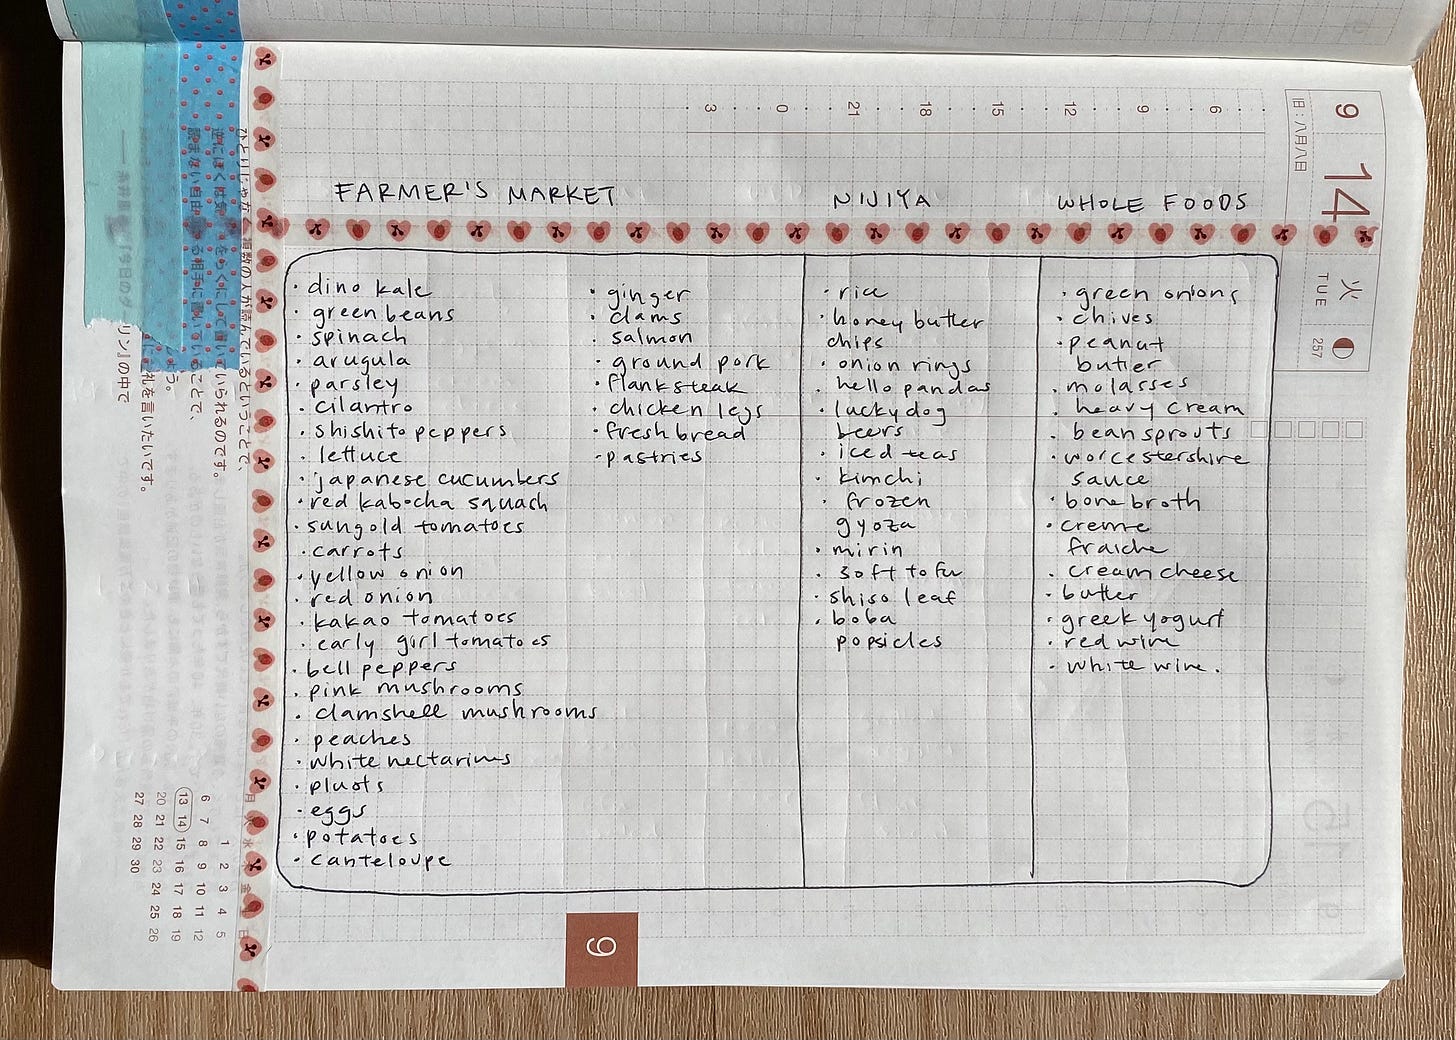 FARMER'S MARKET
· dino kale
· green beans
· spinach
· arugula
· parsley
· cilantro
· shishito peppers
· lettuce
· japanese cucumbers
· red kabocha squash
· sungold tomatoes
· carrots
· yellow onion
· red onion
· kakao tomatoes
· early girl tomatoes
· bell peppers
· pink mushrooms
· clamshell mushrooms
· peaches
· white nectarines
· pluots
· eggs
· potatoes
· canteloupe
· ginger
· clams
· salmon
· ground pork
· flank steak
· chicken legs
· fresh bread
· pastries
NIJIYA
· rice
· honey butter
chips
· onion rings
· hello pandas
· lucky dog
beers
· iced teas
· kimchi
· frozen
gyoza
· mirin
· soft tofu
· shiso leaf
· boba
popsicles
WHOLE FOODS
· green onions
· chives
· peanut
butter
· molasses
· heavy cream
· bean sprouts
· worcestershire
sauce
· bone broth
· creme
fraiche
· cream cheese
· butter
· greek yogurt
· red wine
· white wine.
9
14
火
TUE
257
旧:八月八日
6
9
12
15
18
21
0
3
9
複数の人が読んでいるということで、
ることで、
礼を言いたいです。
リン』の中で
月 火 水 木 金 日
1 2 3 4 5
6 7 8 9 10 11 12
13 14 15 16 17 18 19
20 21 22 23 24 25 26
27 28 29 30